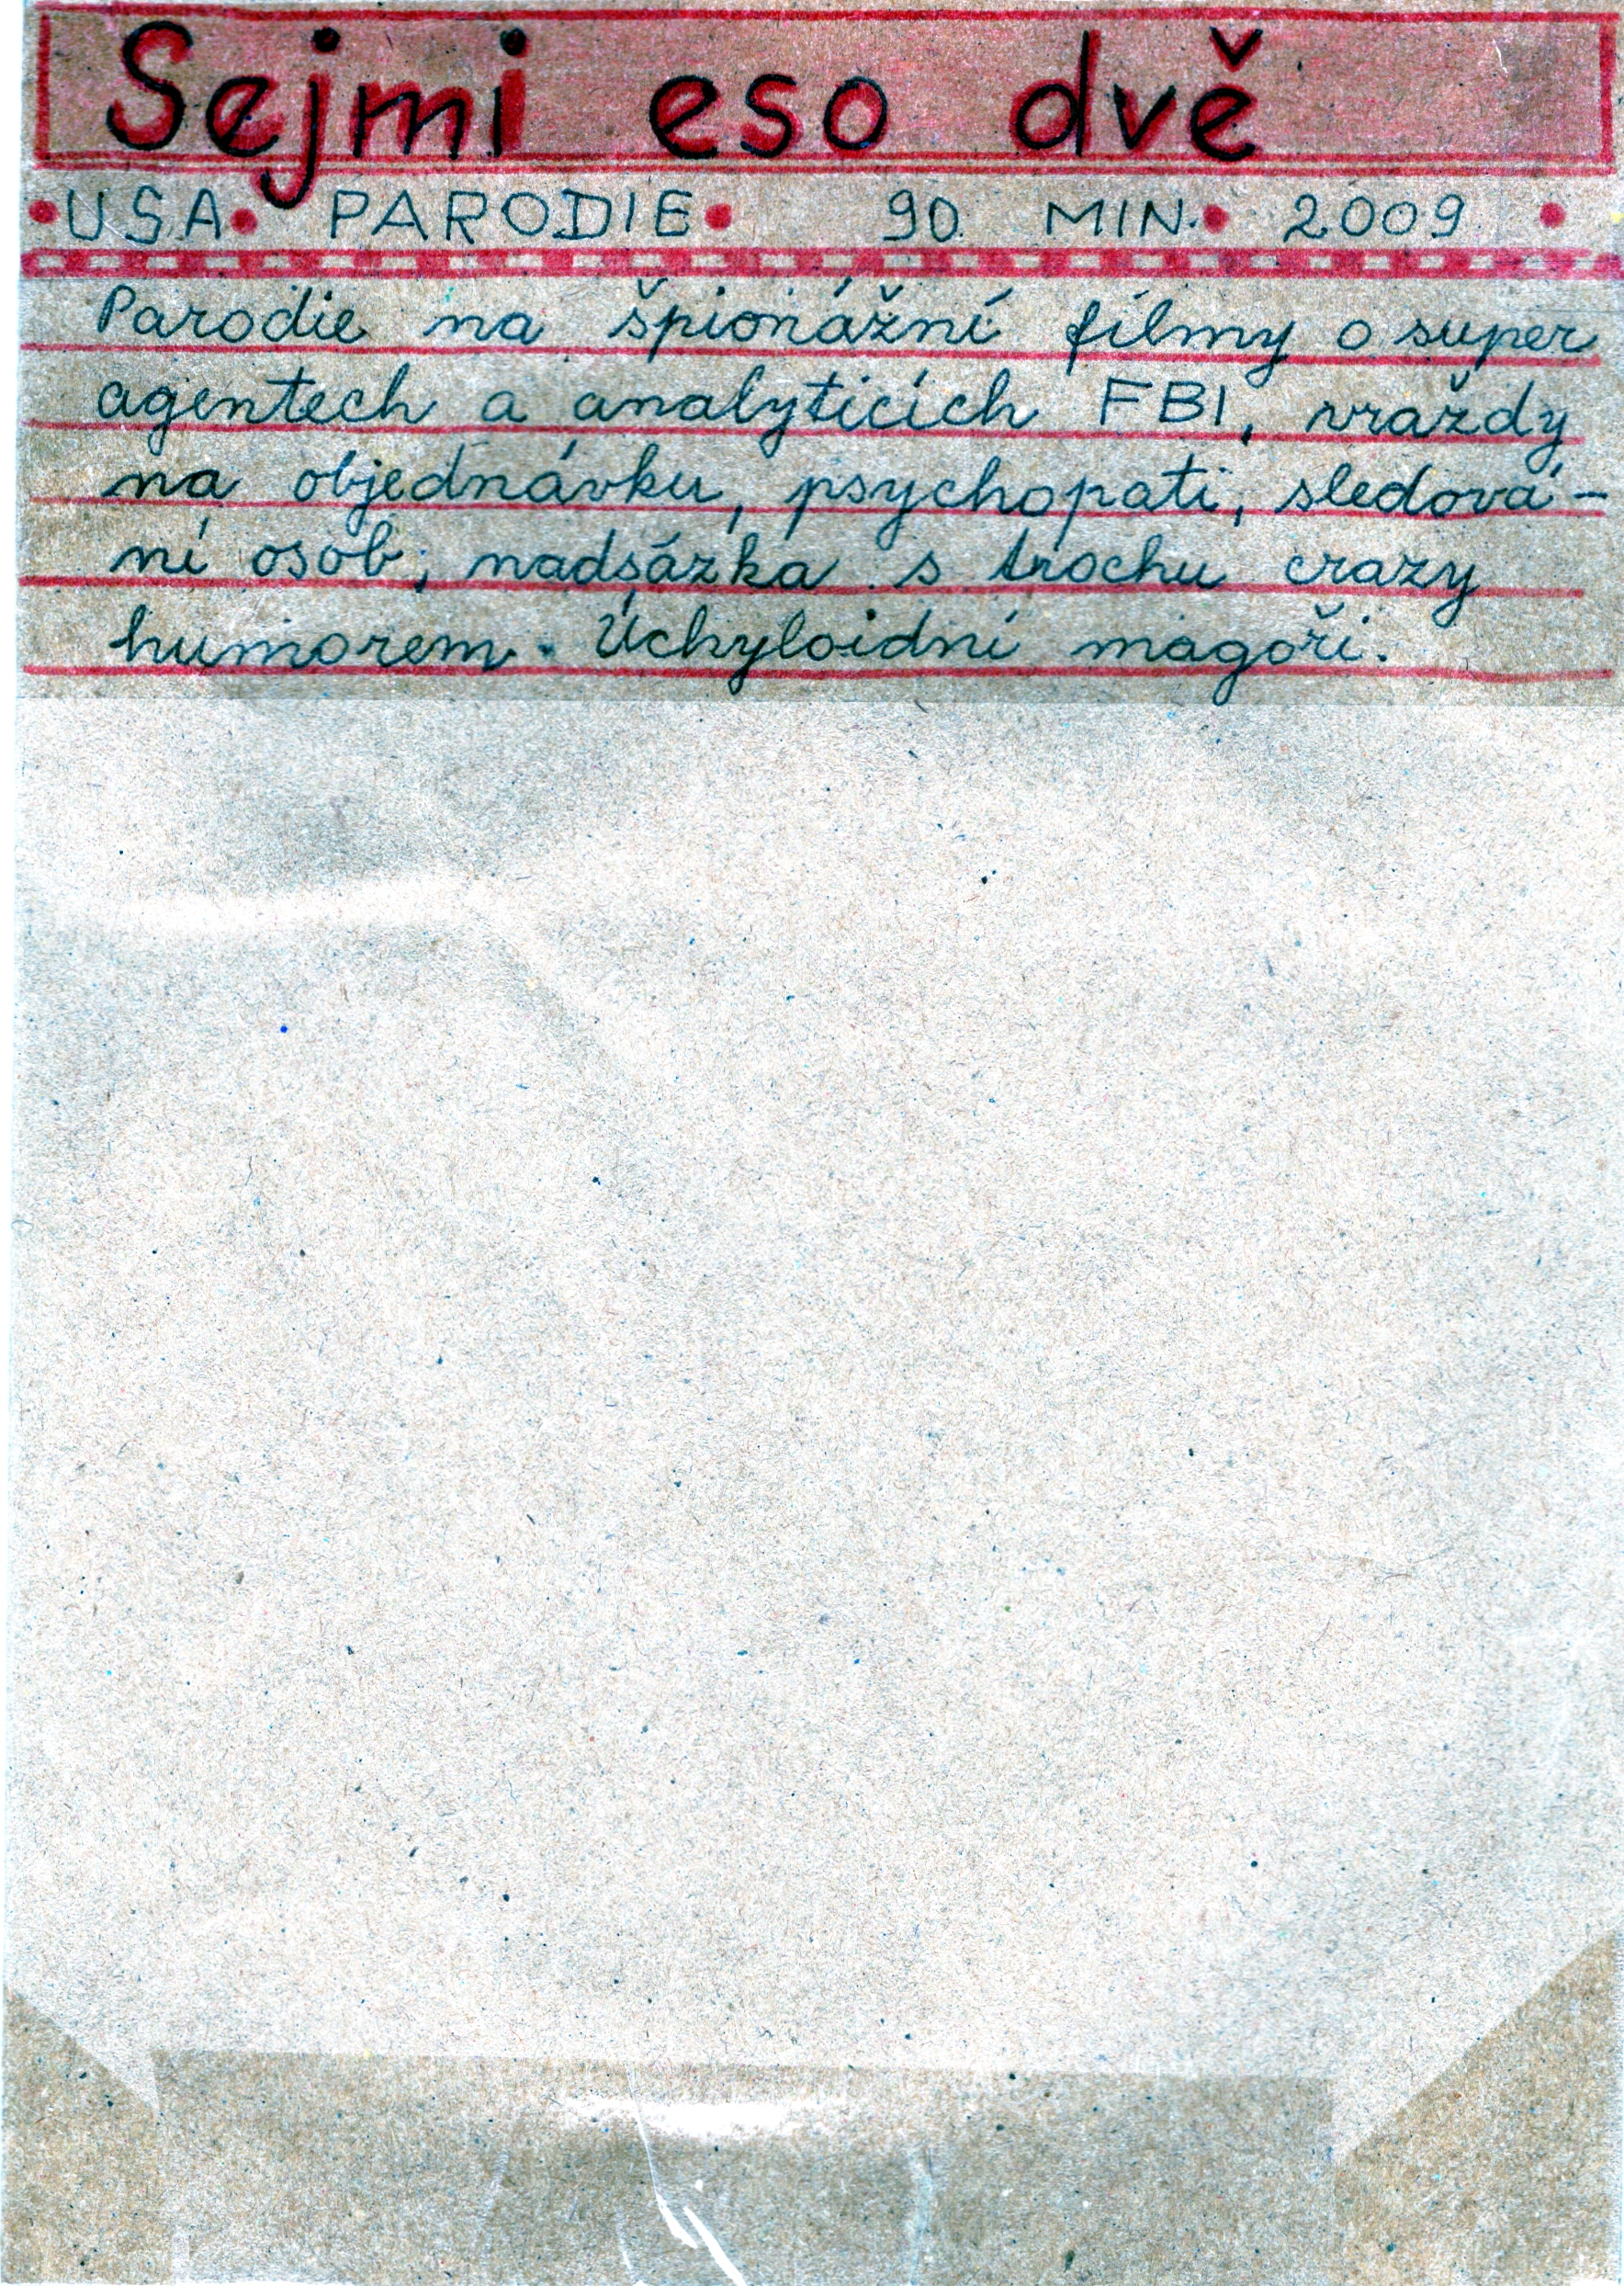 Sejmi eso dvě
• USA • PARODIE • 90 MIN. • 2009 •
Parodie na špionážní filmy o super
agentech a analyticích FBI, vraždy
na objednávku, psychopati, sledová-
ní osob, nadsázka s trochu crazy
humorem. Úchyloidní magoři.